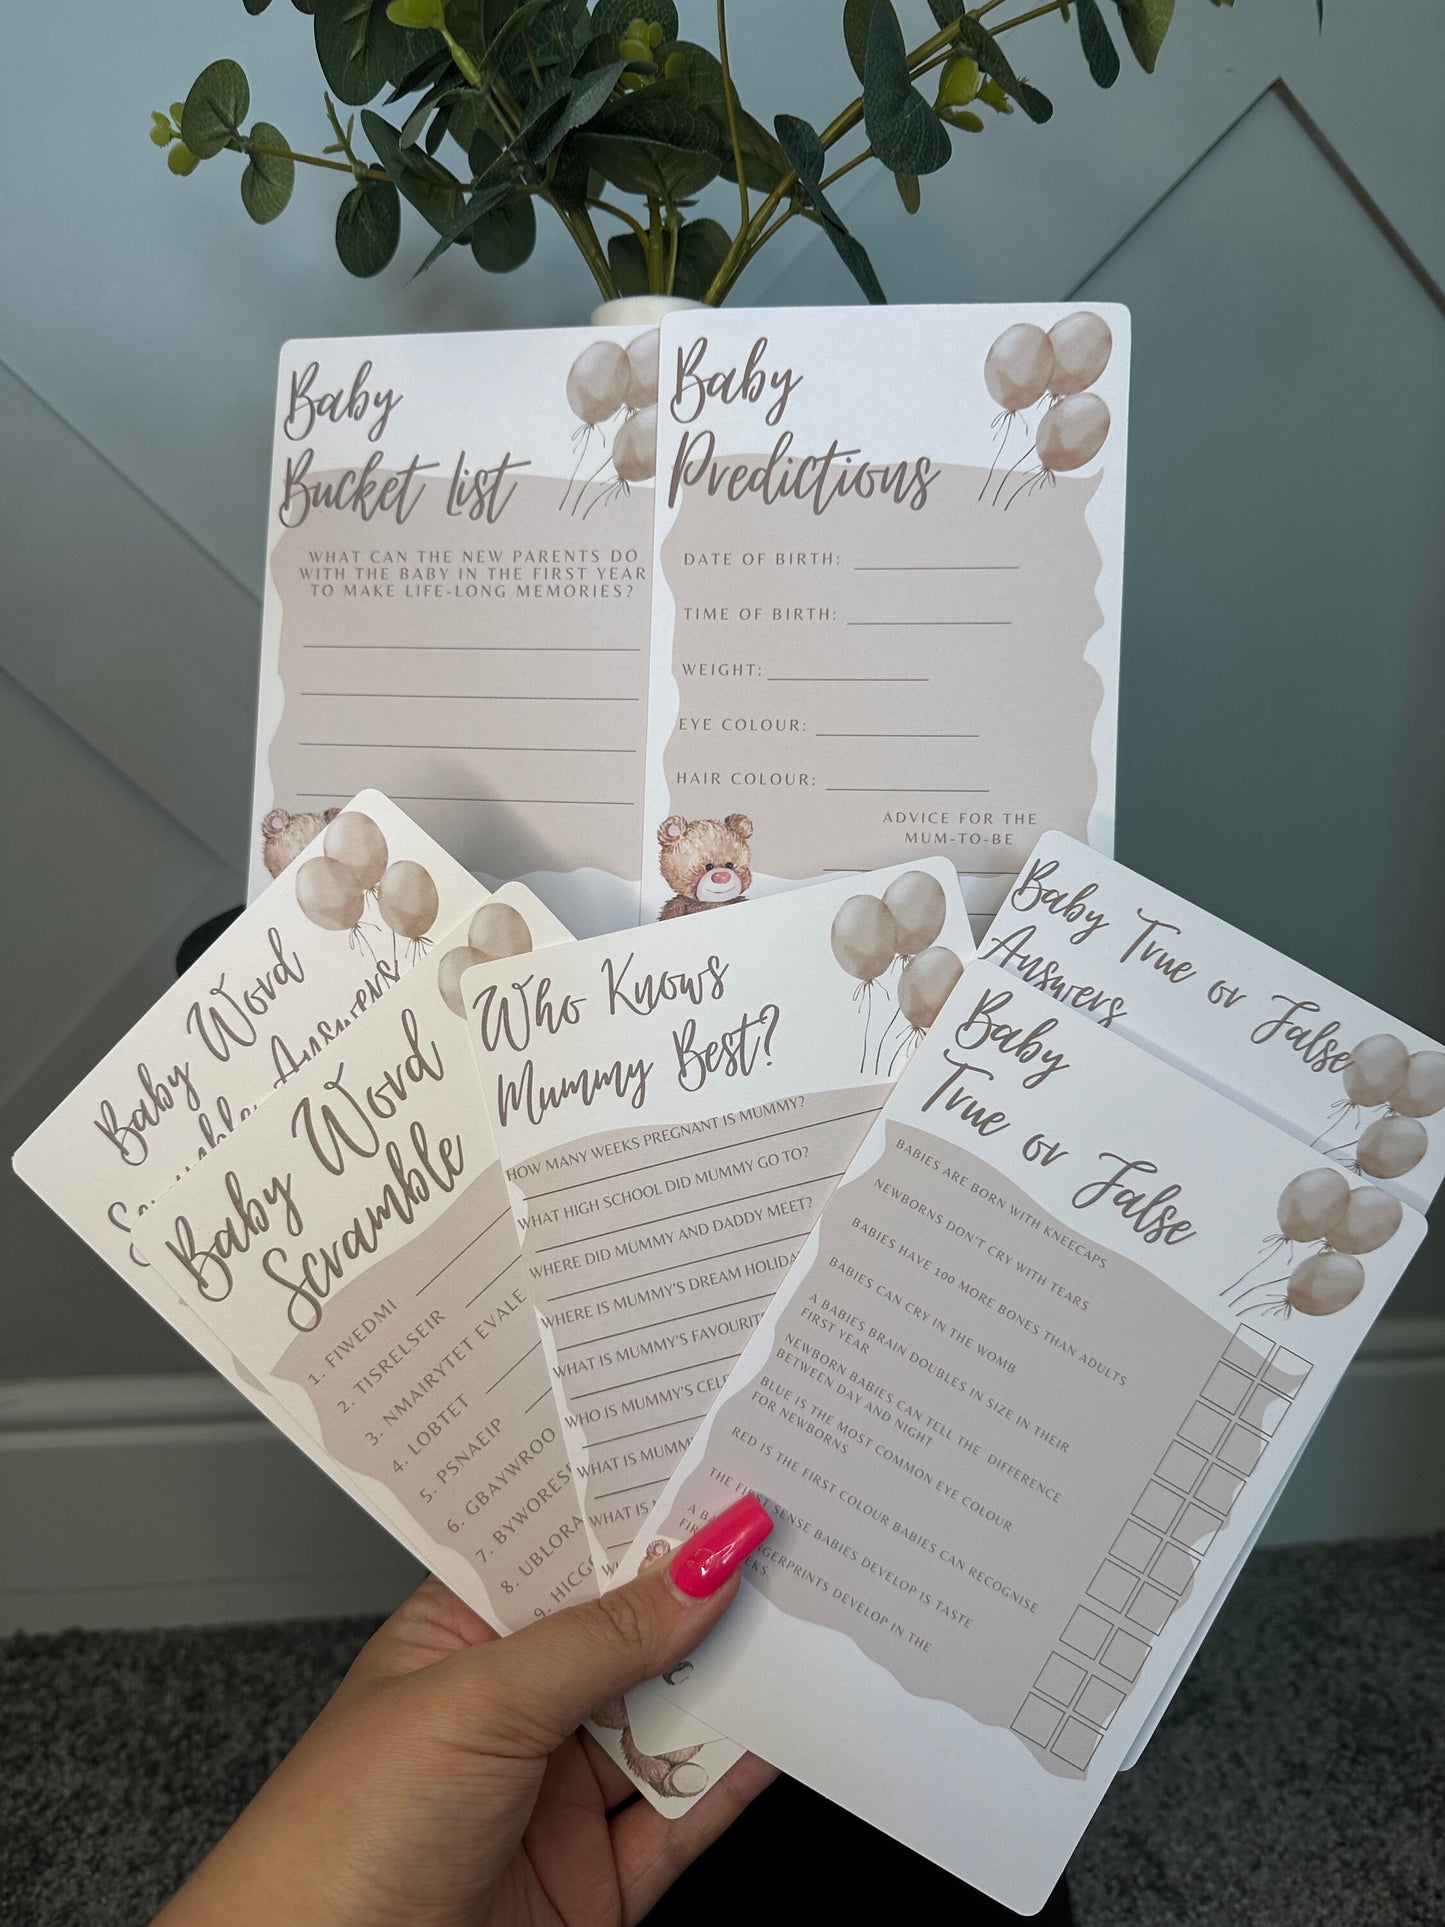 Baby
Bucket list
WHAT CAN THE NEW PARENTS DO
WITH THE BABY IN THE FIRST YEAR
TO MAKE LIFE-LONG MEMORIES?
Baby
Predictions
DATE OF BIRTH:
TIME OF BIRTH:
WEIGHT:
EYE COLOUR:
HAIR COLOUR:
ADVICE FOR THE
MUM-TO-BE
Baby Word
Answers
Baby Word
Scramble
1. FIWEDMI
2. TISRELSEIR
3. NMAIRYTET EVALE
4. LOBTET
5. PSNAEIP
6. GBAYWROO
7. BYWORESS
8. UBLORA
9. HICG
Who Knows
Mummy Best?
HOW MANY WEEKS PREGNANT IS MUMMY?
WHAT HIGH SCHOOL DID MUMMY GO TO?
WHERE DID MUMMY AND DADDY MEET?
WHERE IS MUMMY'S DREAM HOLIDA
WHAT IS MUMMY'S FAVOURIT
WHO IS MUMMY'S CEL
WHAT IS MUMM
WHAT IS
Baby True or False
Answers
Baby
True or False
BABIES ARE BORN WITH KNEECAPS
NEWBORNS DON'T CRY WITH TEARS
BABIES HAVE 100 MORE BONES THAN ADULTS
BABIES CAN CRY IN THE WOMB
A BABIES BRAIN DOUBLES IN SIZE IN THEIR
FIRST YEAR
NEWBORN BABIES CAN TELL THE DIFFERENCE
BETWEEN DAY AND NIGHT
BLUE IS THE MOST COMMON EYE COLOUR
FOR NEWBORNS
RED IS THE FIRST COLOUR BABIES CAN RECOGNISE
THE FIRST SENSE BABIES DEVELOP IS TASTE
A BA NGERPRINTS DEVELOP IN THE
FIR EEKS.